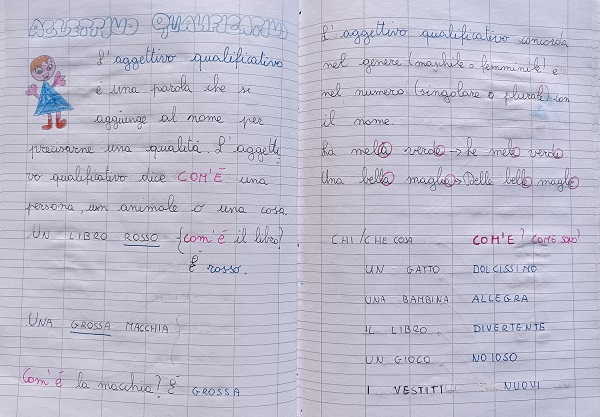 AGGETTIVO QUALIFICATIVO
L'aggettivo qualificativo
é una parola che si
aggiunge al nome per
precisarne una qualità. L'aggetti
vo qualificativo dice COM'È una
persona, un animale o una cosa.
UN LIBRO ROSSO {com'é il libro?
É rosso.
UNA GROSSA MACCHIA {
Com'é la macchia? É GROSSA
L'aggettivo qualificativo concorda
nel genere (maschile o femminile) e
nel numero (singolare o plurale) con
il nome.
La mela verde → Le mele verdi
Una bella maglia → Delle belle maglie
CHI/CHE COSA COM'E? COME SONO?
UN GATTO DOLCISSIMO
UNA BAMBINA ALLEGRA
IL LIBRO DIVERTENTE
UN GIOCO NOIOSO
I VESTITI NUOVI